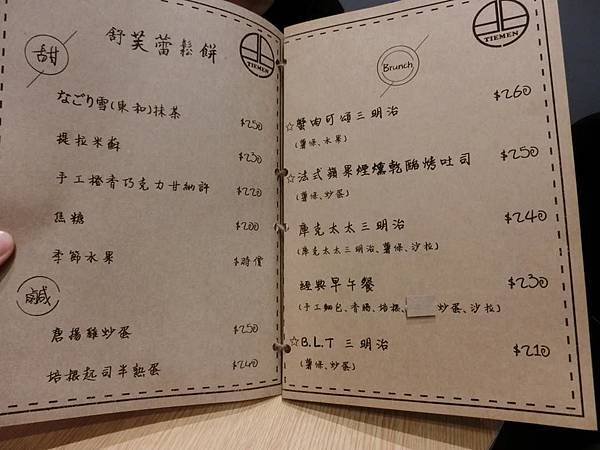 甜
舒芙蕾鬆餅
TIEMEN
なごり雪(東和)抹茶
$250
提拉米酥
$230
手工橙香巧克力甘納許
$220
焦糖
$200
季節水果
$時價
鹹
唐揚雞炒蛋
$250
培根起司半熟蛋
$240
Brunch
TIEMEN
☆蟹肉可頌三明治
$260
(薯條、水果)
☆法式蘋果煙燻乾酪烤吐司
$250
(薯條、炒蛋)
庫克太太三明治
$240
(庫克太太三明治、薯條、沙拉)
經典早午餐
$230
(手工麵包、香腸、培根、炒蛋、沙拉)
☆B.L.T 三明治
$210
(薯條、炒蛋)